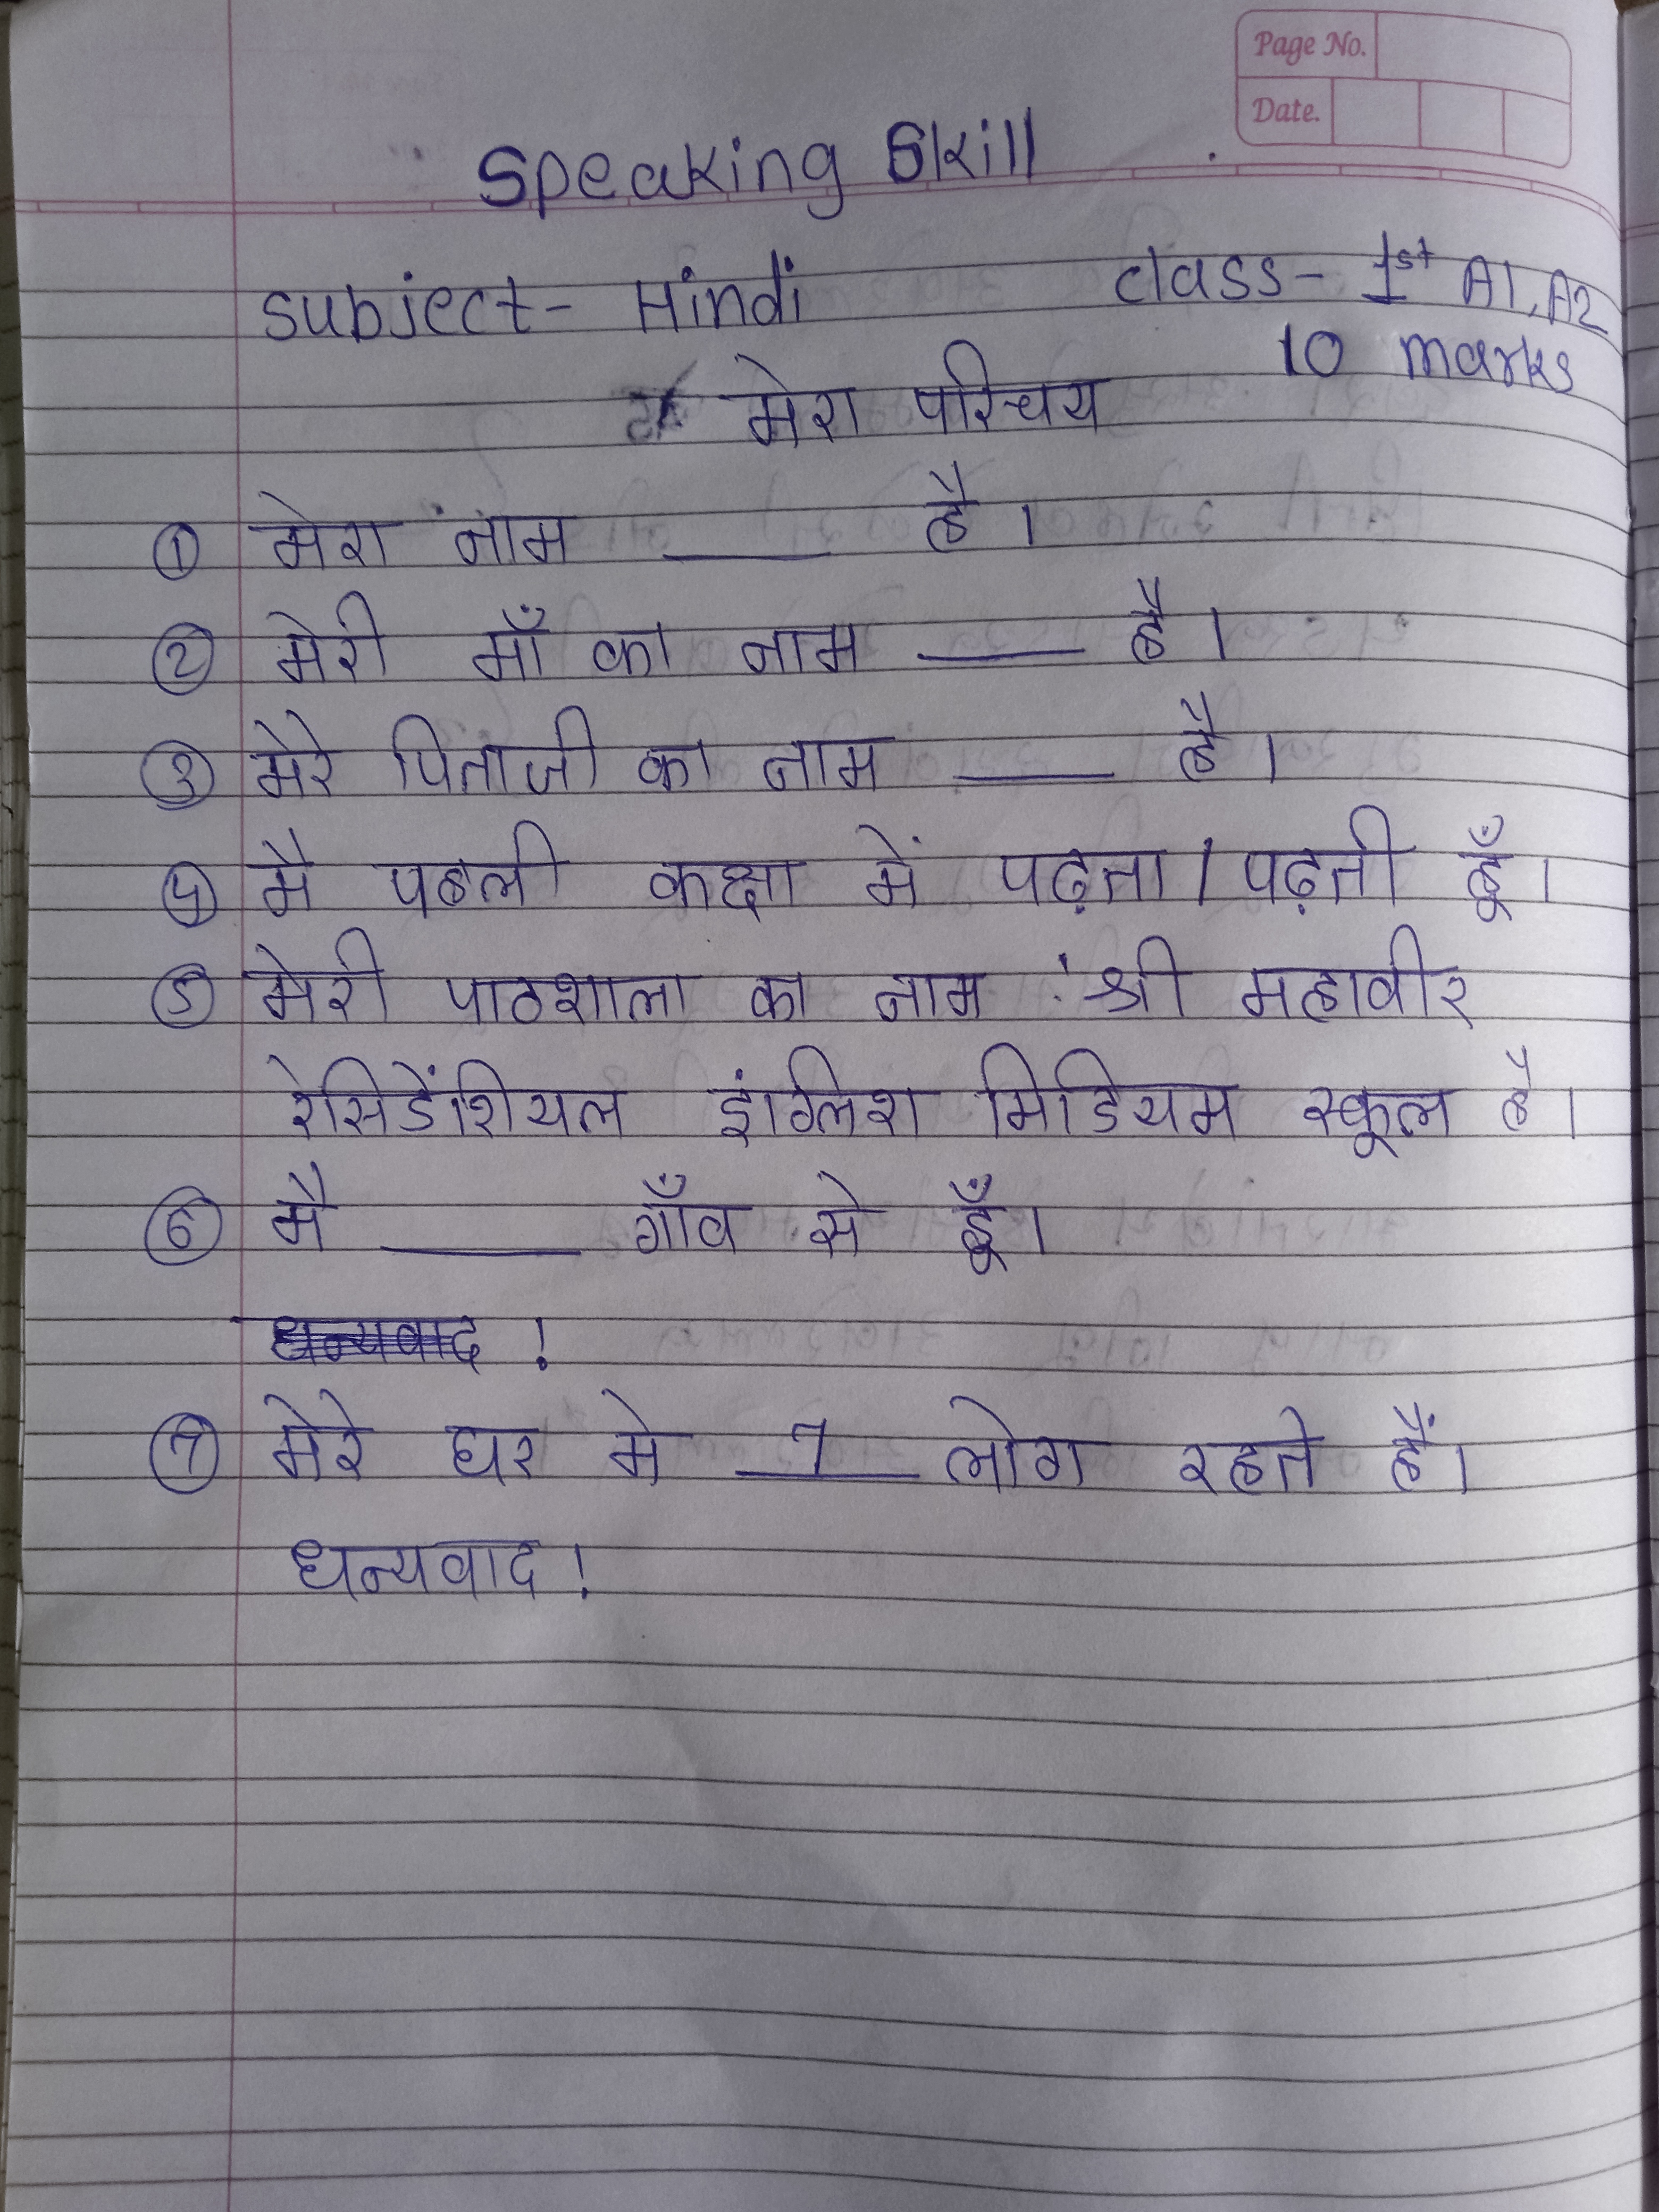 Page No.
Date.
Speaking Skill
Subject - Hindi class - 1st A1, A2
10 marks
मेरा परिचय
① मेरा नाम ____ है।
② मेरी माँ का नाम ____ है।
③ मेरे पिताजी का नाम ____ है।
④ मै पहली कक्षा में पढ़ता / पढ़ती हूँ।
⑤ मेरी पाठशाला का नाम श्री महावीर
रेसिडेंशियल इंग्लिश मिडियम स्कूल है।
⑥ मै ____ गाँव से हूँ।
धन्यवाद !
⑦ मेरे घर मे 7 लोग रहते हैं।
धन्यवाद !